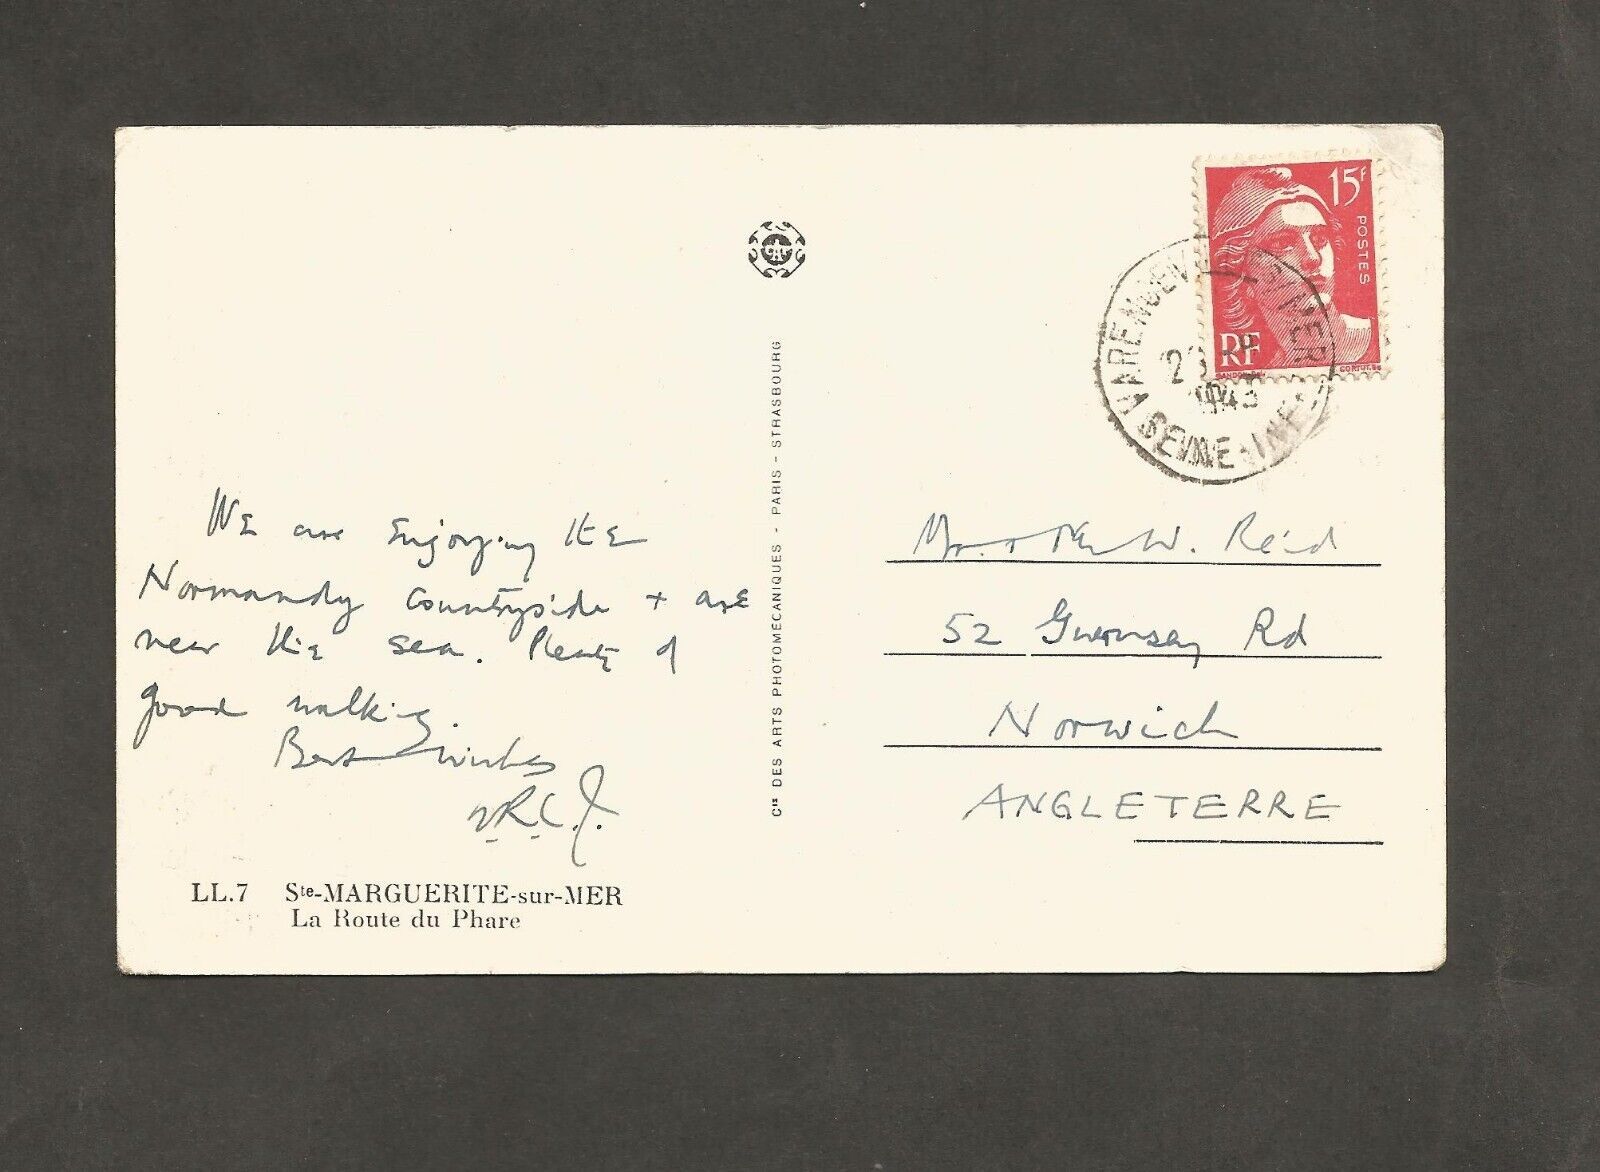 We are enjoying the
Normandy countryside + are
near the sea. Plenty of
good walking.
Best wishes
LL.7 Ste-MARGUERITE-sur-MER
La Route du Phare
Cie DES ARTS PHOTOMECANIQUES - PARIS - STRASBOURG
15F
POSTES
RF
VARENGEVILLE S/MER
SEINE-INFRE
Mr. + Mrs W. Reid
52 Guernsey Rd
Norwich
ANGLETERRE